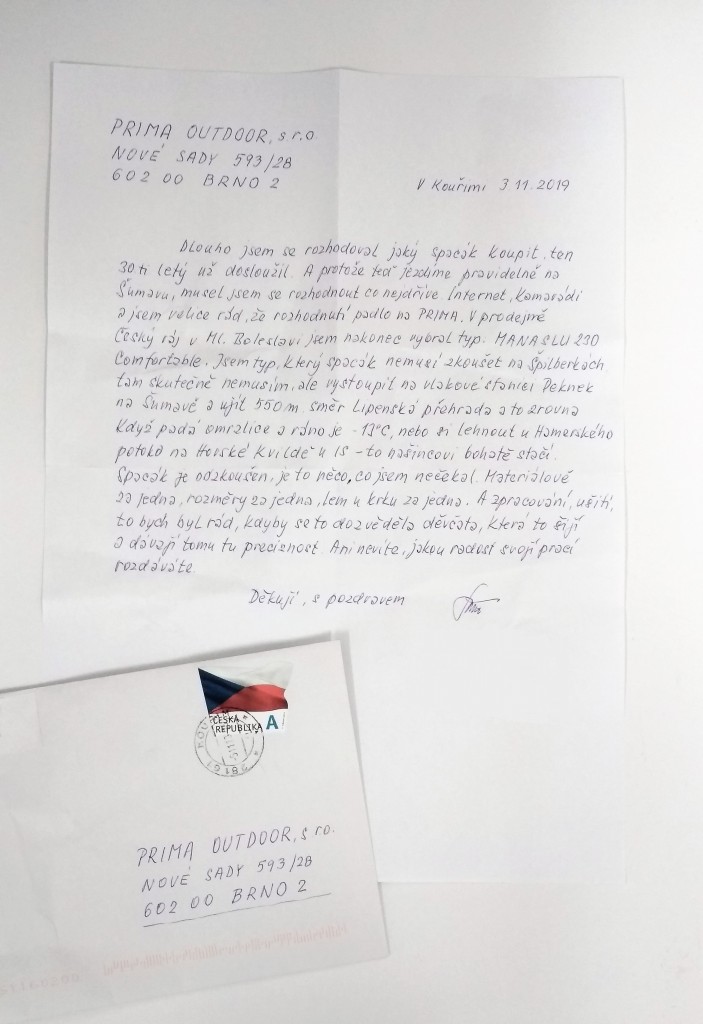 PRIMA OUTDOOR, s.r.o.
NOVÉ SADY 593/2B
602 00 BRNO 2
V Kouřimi 3.11.2019
Dlouho jsem se rozhodoval jaký spacák koupit, ten
30ti letý už dosloužil. A protože teď jezdíme pravidelně na
Šumavu, musel jsem se rozhodnout co nejdříve. Internet, kamarádi
a jsem velice rád, že rozhodnutí padlo na PRIMA. V prodejně
Český ráj v Ml. Boleslavi jsem nakonec vybral typ. MANASLU 230
Comfortable. Jsem typ, který spacák nemusí zkoušet na Špilberkách
tam skutečně nemusím, ale vystoupit na vlakové stanici Pěkná
na Šumavě a ujít 550 m směr Lipenská přehrada a to zrovna
když padá omrzlice a ráno je -13°C, nebo si lehnout u Hamerského
potoka na Horské Kvildě u IS - to našincovi bohatě stačí.
Spacák je odzkoušen, je to něco, co jsem nečekal. Materiálově
za jedna, rozměry za jedna, lem u krku za jedna. A zpracování, ušití,
to bych byl rád, kdyby se to dozvěděla děvčata, která to šijí
a dávají tomu tu preciznost. Ani nevíte, jakou radost svojí prací
rozdáváte.
Děkuji, s pozdravem
ČESKÁ
REPUBLIKA A
KOUŘIM
281 61
PRIMA OUTDOOR, s r.o.
NOVÉ SADY 593/2B
602 00 BRNO 2